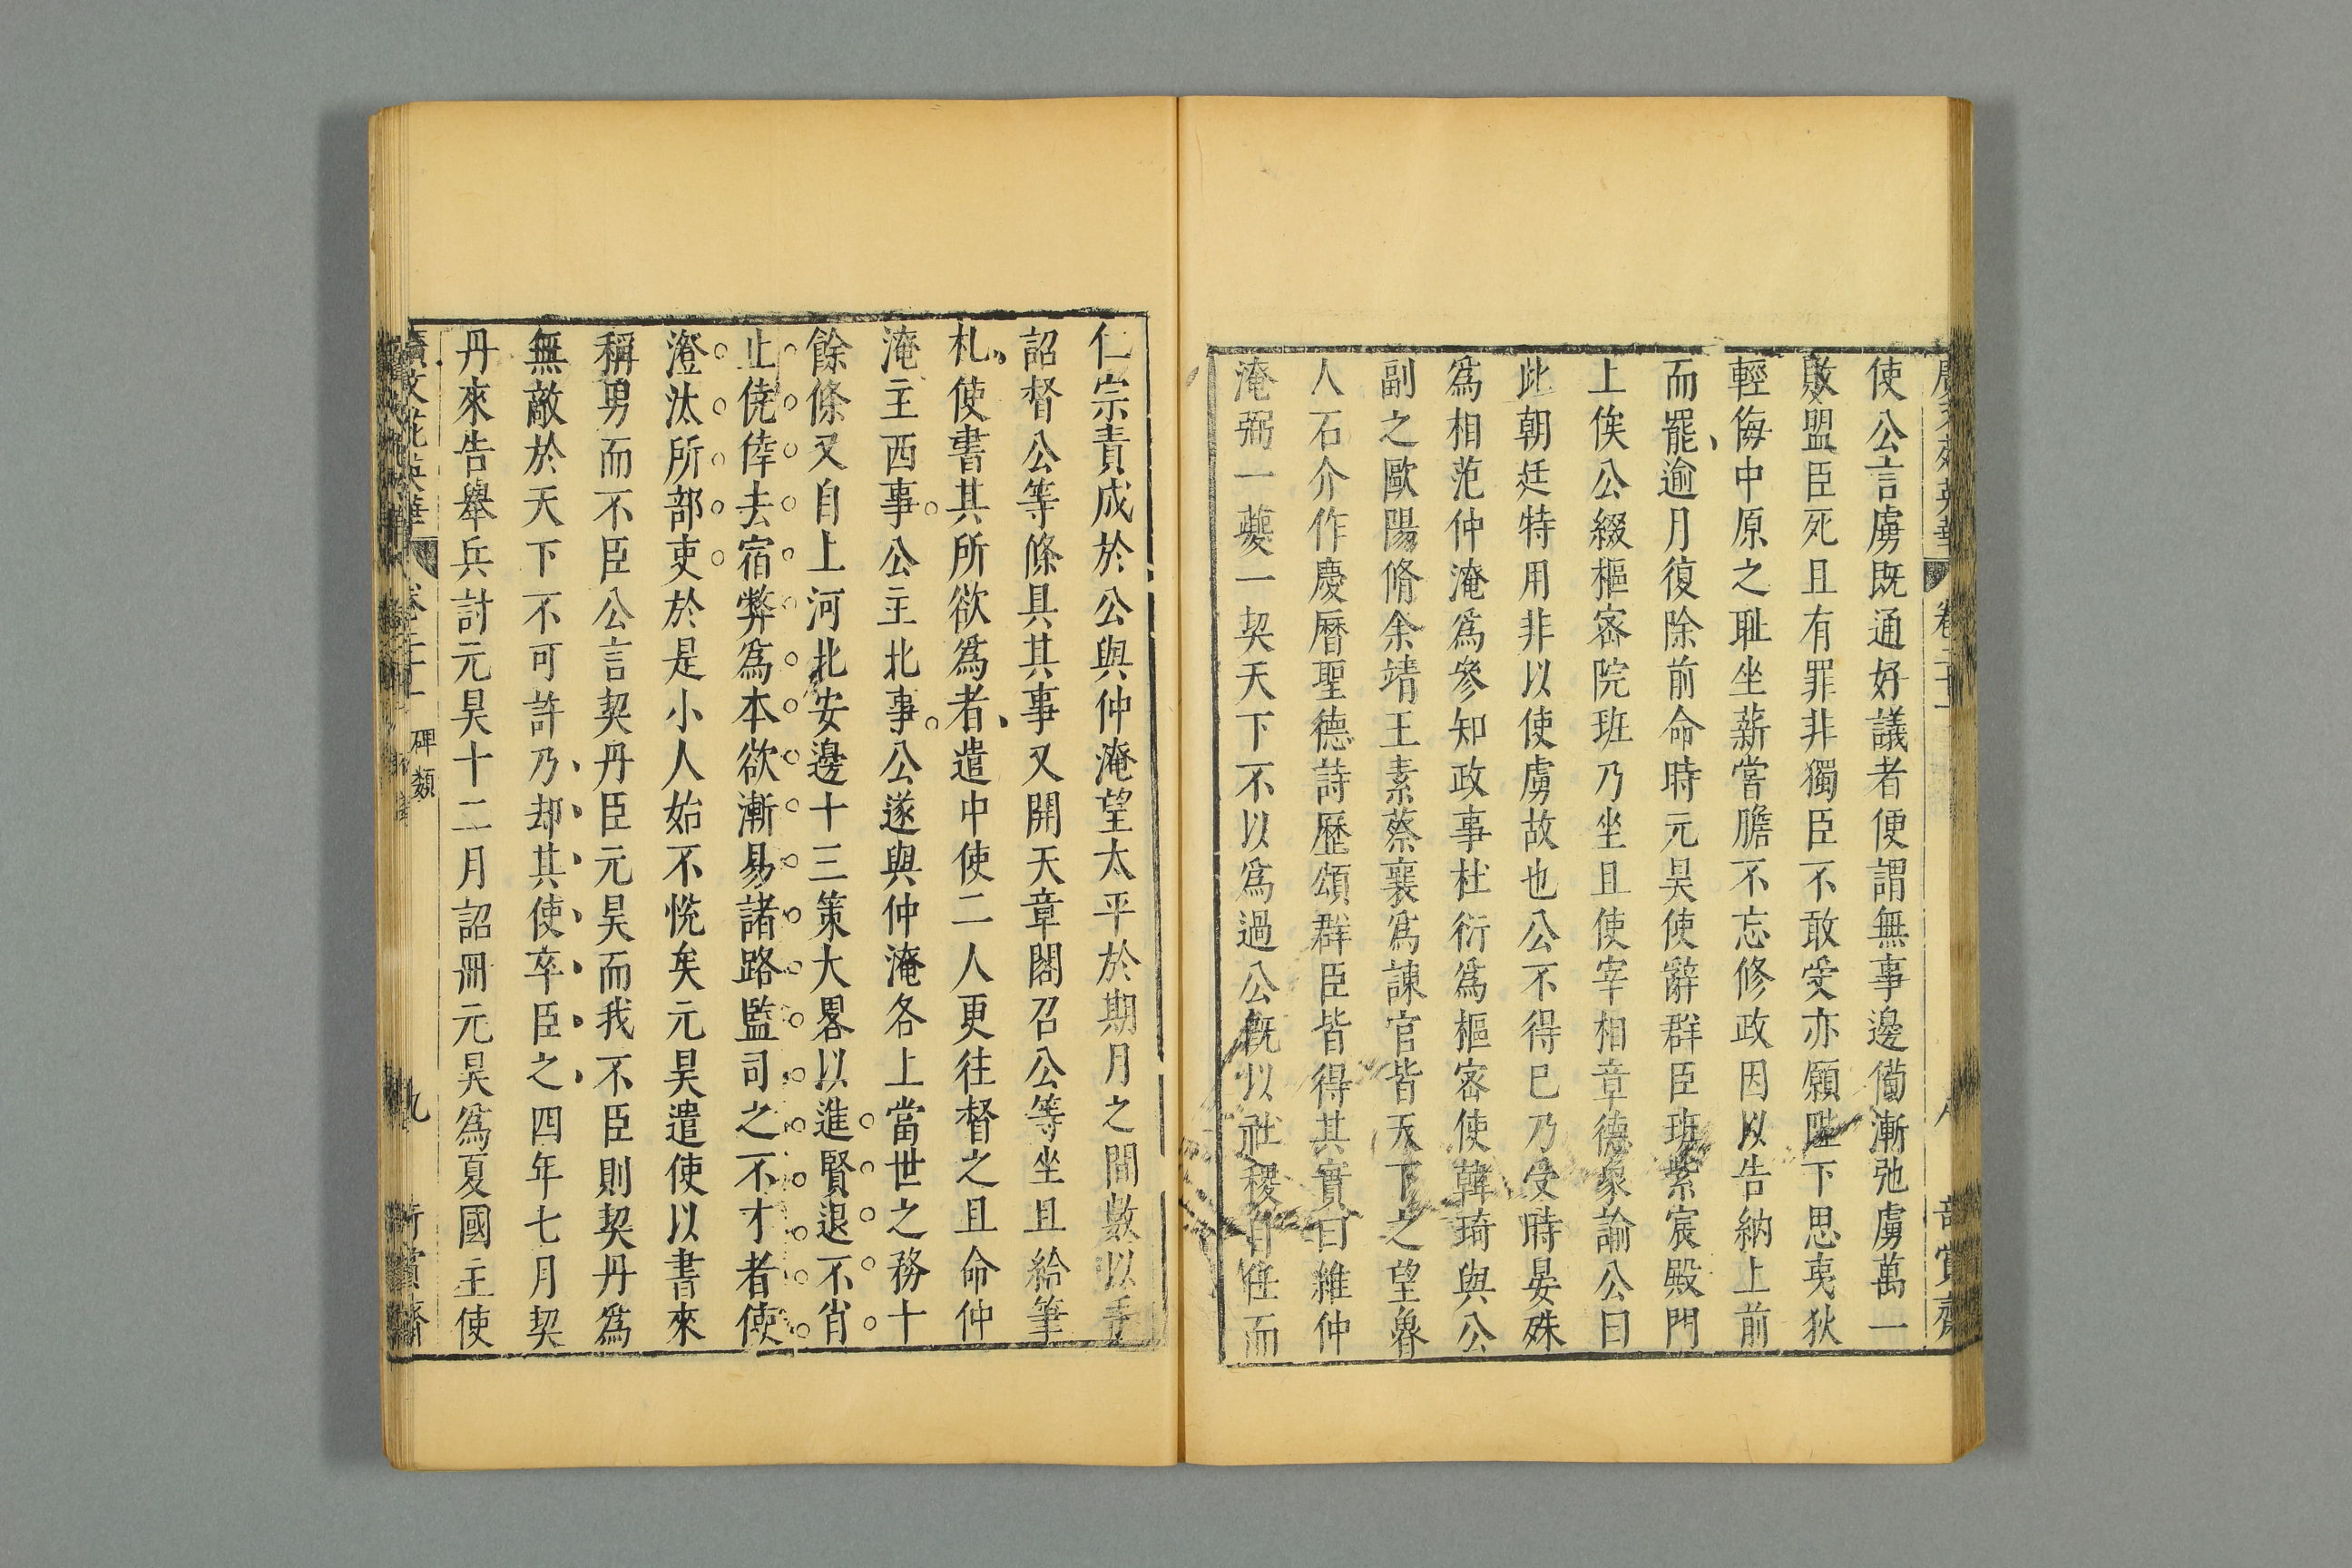 使公言虜既通好議者便謂無事邊備漸弛虜萬一
敗盟臣死且有罪非獨臣不敢受亦願陛下思夷狄
輕侮中原之恥坐薪嘗膽不忘修政因以告納上前
而罷逾月復除前命時元昊使辭群臣班紫宸殿門
上俟公綴樞密院班乃坐且使宰相章德象諭公曰
此朝廷特用非以使虜故也公不得已乃受時晏殊
為相范仲淹為參知政事杜衍為樞密使韓琦與公
副之歐陽脩余靖王素蔡襄為諫官皆天下之望魯
人石介作慶曆聖德詩歷頌群臣皆得其實曰維仲
淹弼一夔一契天下不以為過公既以社稷自任而
仁宗責成於公與仲淹望太平於期月之間數以手
詔督公等條具其事又開天章閣召公等坐且給筆
札使書其所欲為者遣中使二人更往督之且命仲
淹主西事公主北事公遂與仲淹各上當世之務十
餘條又自上河北安邊十三策大畧以進賢退不肖
止僥倖去宿弊為本欲漸易諸路監司之不才者使
澄汰所部吏於是小人始不悅矣元昊遣使以書來
稱男而不臣公言契丹臣元昊而我不臣則契丹為
無敵於天下不可許乃却其使卒臣之四年七月契
丹來告舉兵討元昊十二月詔冊元昊為夏國主使
碑類
九